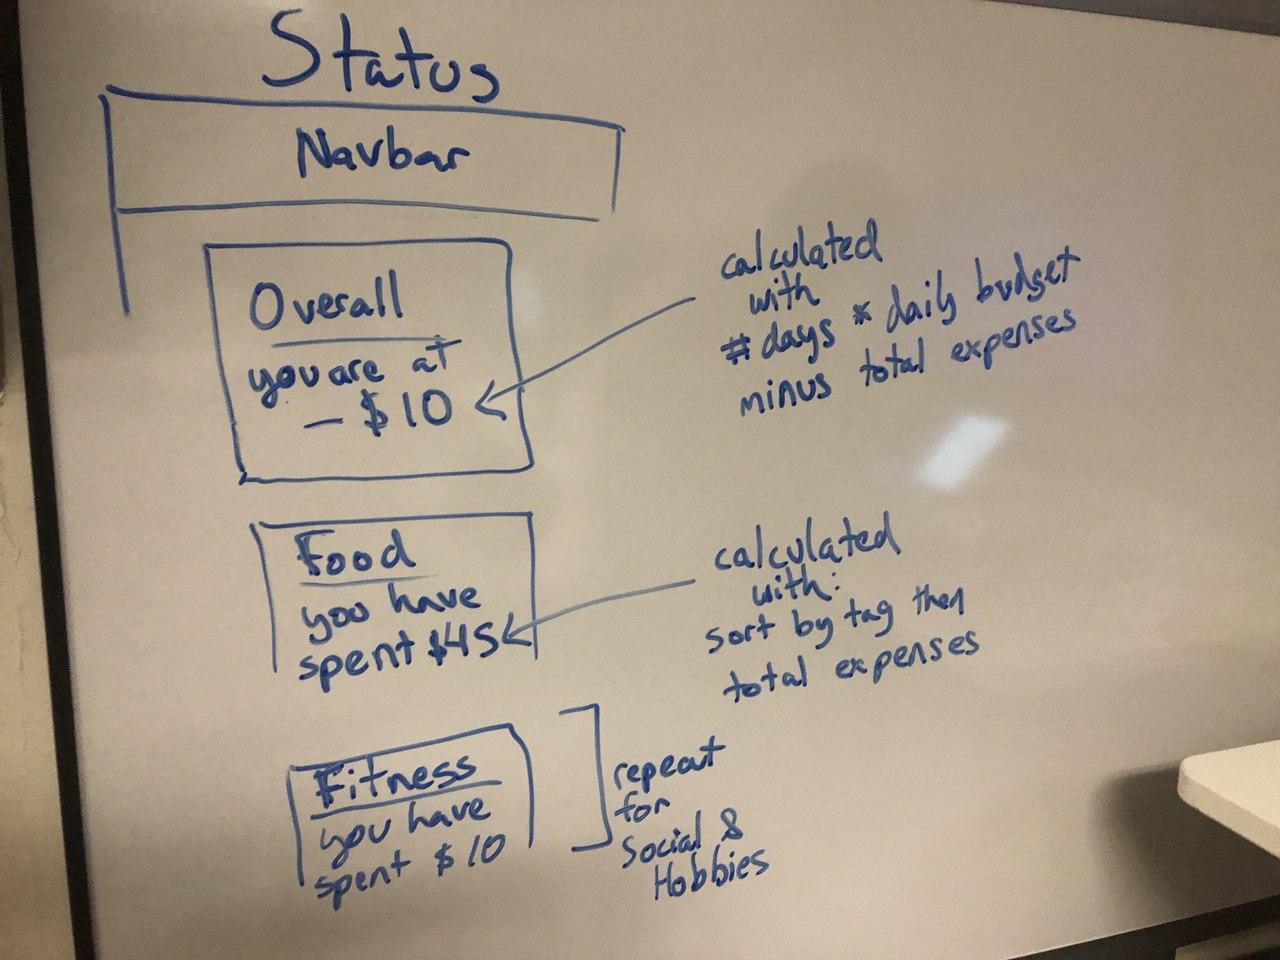 Status
Navbar
Overall
you are at
- $10
calculated
with
# days * daily budget
minus total expenses
Food
you have
spent $45
calculated
with:
sort by tag then
total expenses
Fitness
you have
spent $10
repeat
for
Social &
Hobbies